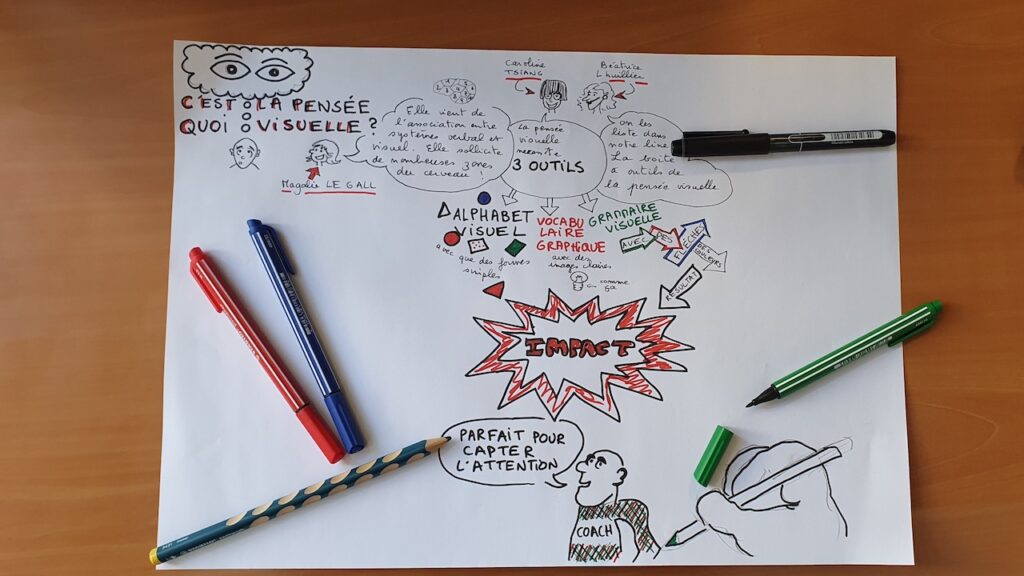 C'EST LA PENSÉE
QUOI VISUELLE ?
Magalie LE GALL
Elle vient de
l'association entre
système verbal et
visuel. Elle sollicite
de nombreuses zones
du cerveau !
Caroline
TSIANG
Béatrice
Lhuillier
La pensée
visuelle
necessite
3 OUTILS
on les
liste dans
notre livre
La boîte
a outils de
la pensée visuelle
ALPHABET
VISUEL
avec que des formes
simples
VOCABU
LAIRE
GRAPHIQUE
avec des
images claires
comme
ça
GRAMMAIRE
VISUELLE
AVEC
DES
FLECHES
DE
COULEURS
RESULTAT
IMPACT
PARFAIT POUR
CAPTER
L'ATTENTION
COACH